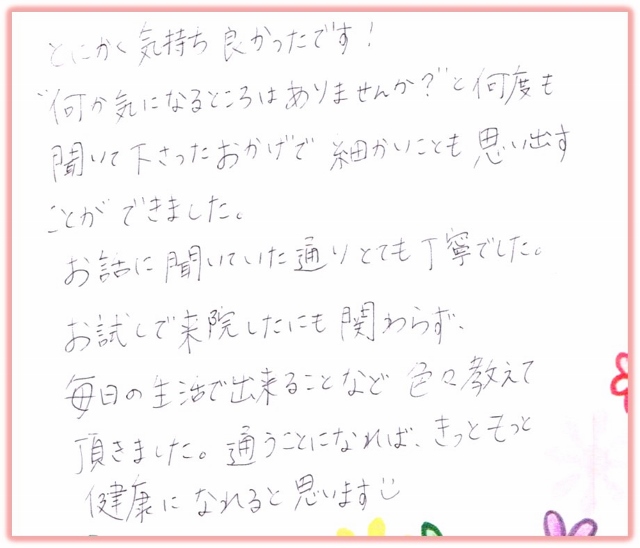 とにかく気持ち良かったです!
"何か気になるところはありませんか?"と何度も
聞いて下さったおかげで細かいことも思い出す
ことができました。
お話に聞いていた通りとても丁寧でした。
お試しで来院したにも関わらず、
毎日の生活で出来ることなど色々教えて
頂きました。通うことになれば、きっともっと
健康になれると思います